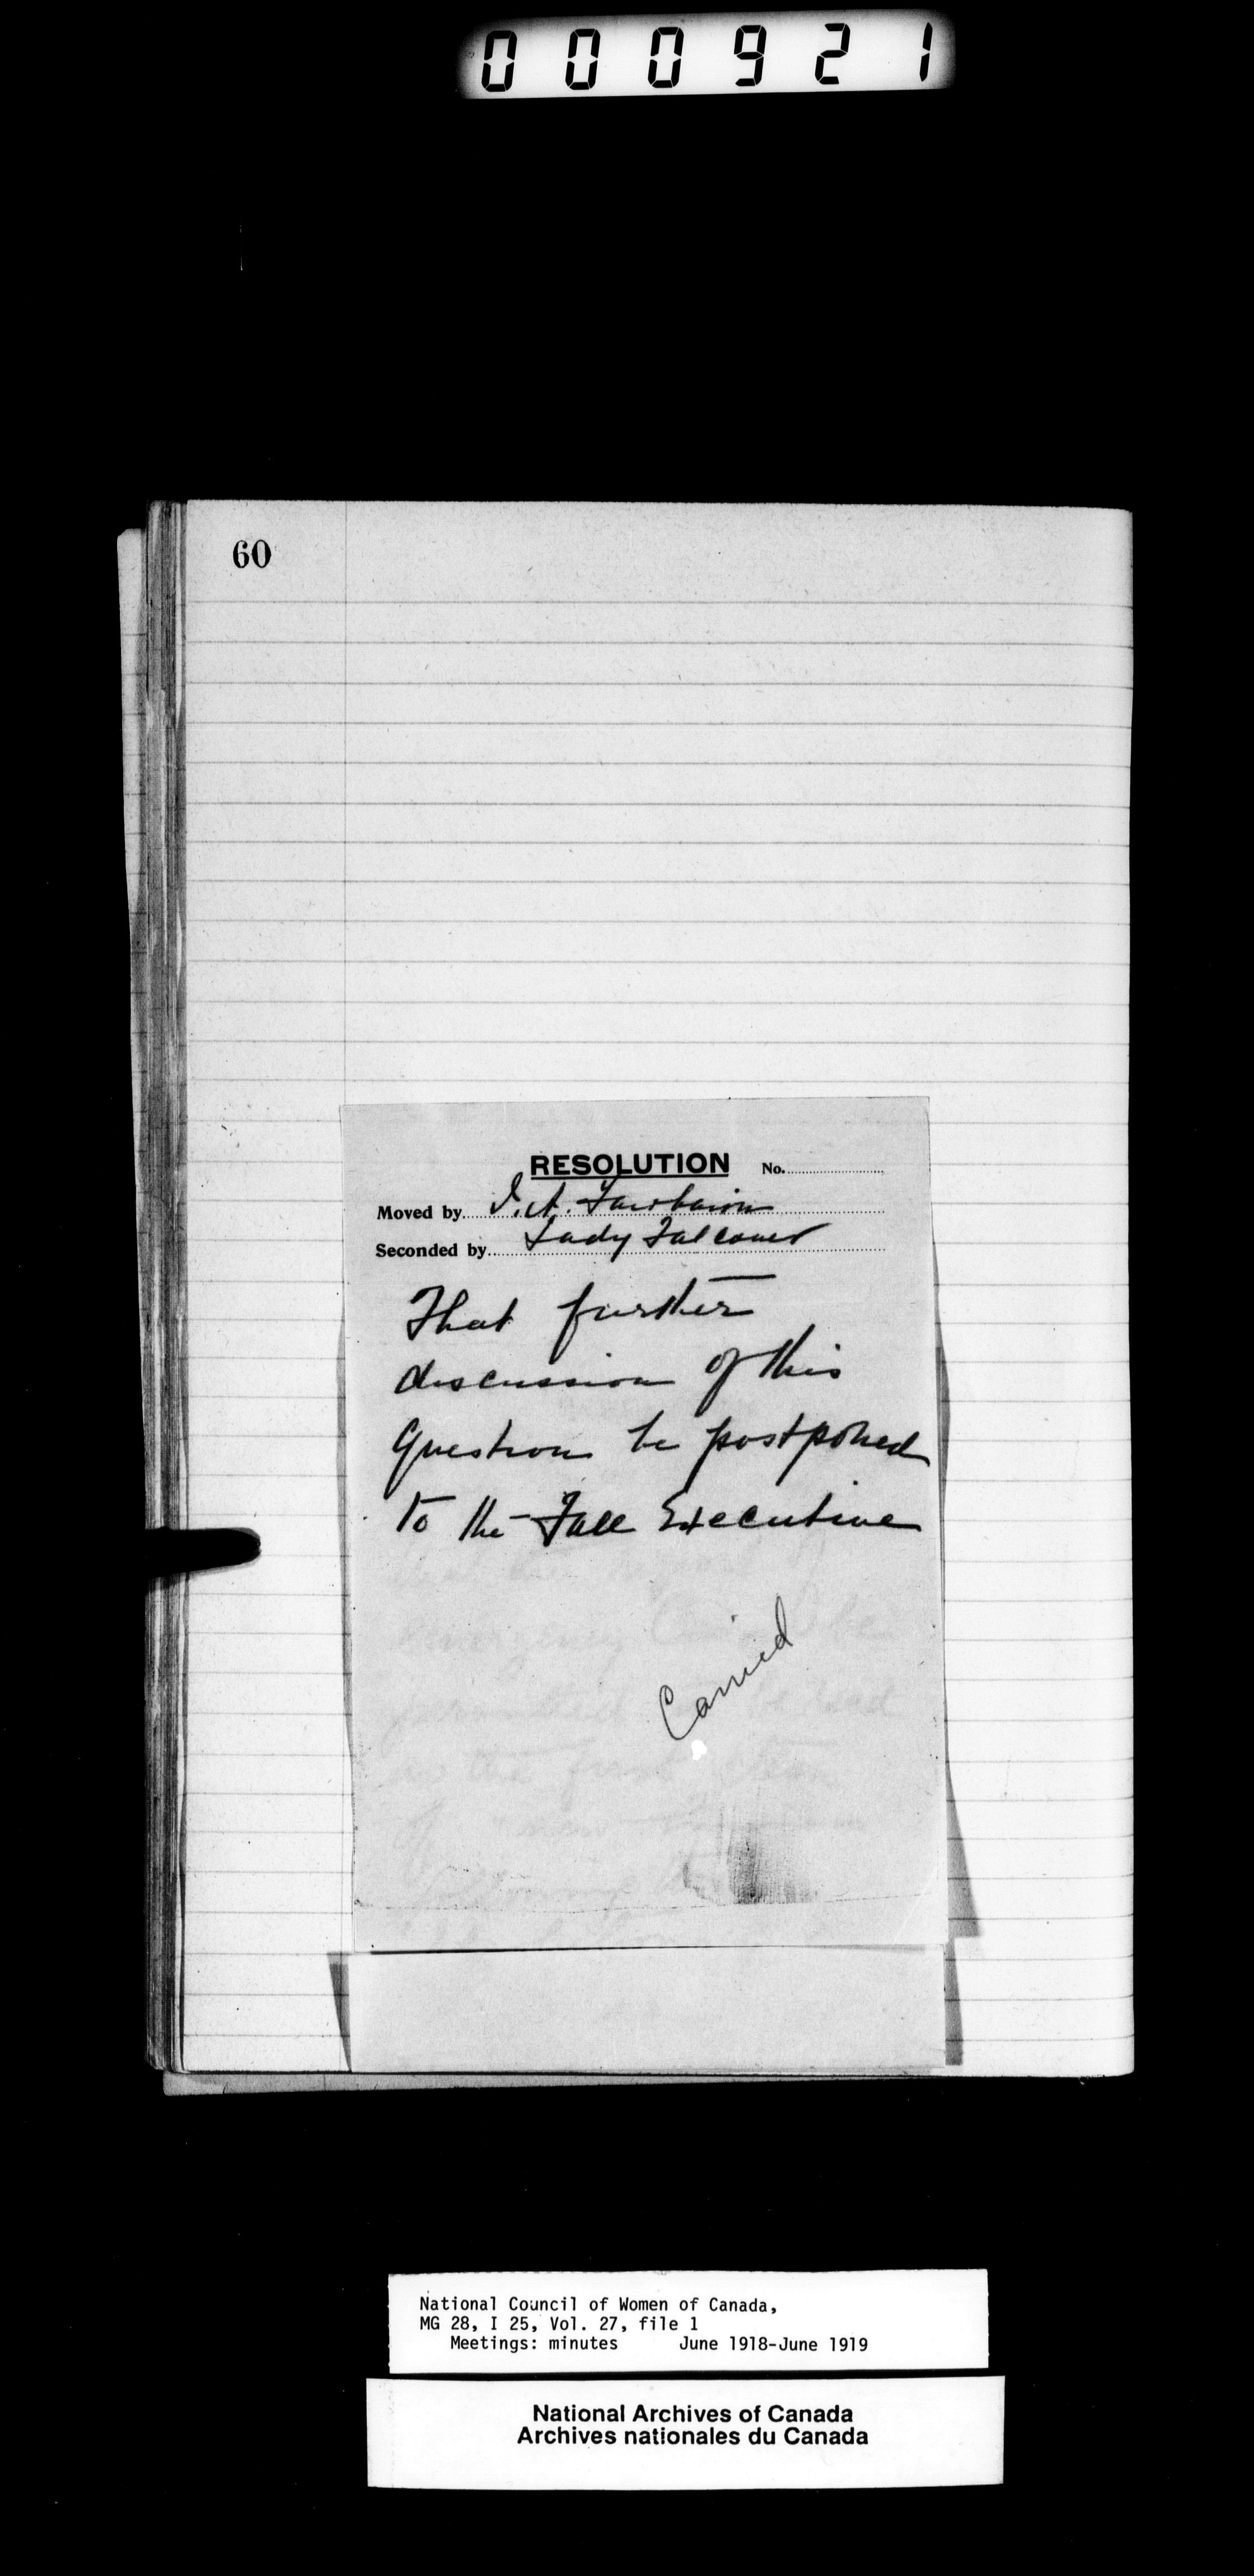 000921
60
RESOLUTION No.
Moved by I. A. Fairbairn
Seconded by Lady Falconer
That further
discussion of this
question be postponed
to the Fall Executive
Carried
National Council of Women of Canada,
MG 28, I 25, Vol. 27, file 1
Meetings: minutes June 1918-June 1919
National Archives of Canada
Archives nationales du Canada